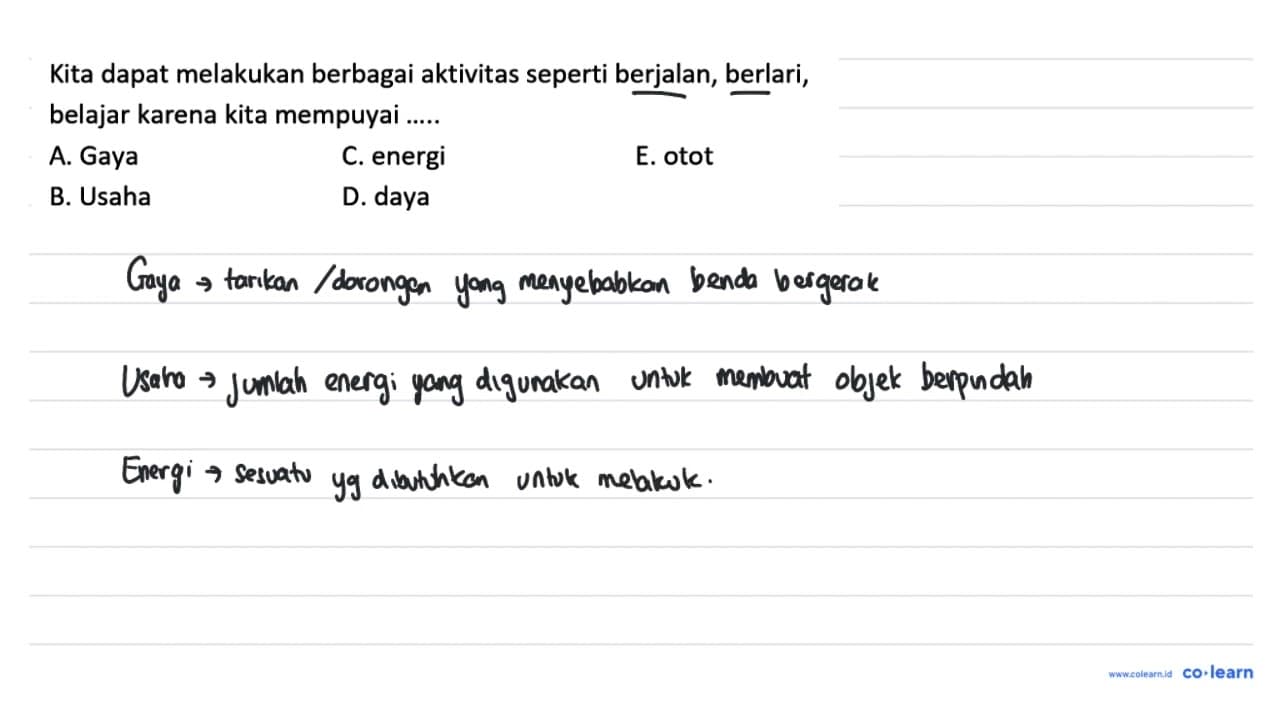 Kita dapat melakukan berbagai aktivitas seperti berjalan, berlari,
belajar karena kita mempuyai .....
A. Gaya C. energi E. otot
B. Usaha D. daya
Gaya → tarikan /dorongan yang menyebabkan benda bergerak
Usaha → Jumlah energi yang digunakan untuk membuat objek berpindah
Energi → sesuatu yg dibutuhkan untuk melakuk.
www.colearn.id co·learn